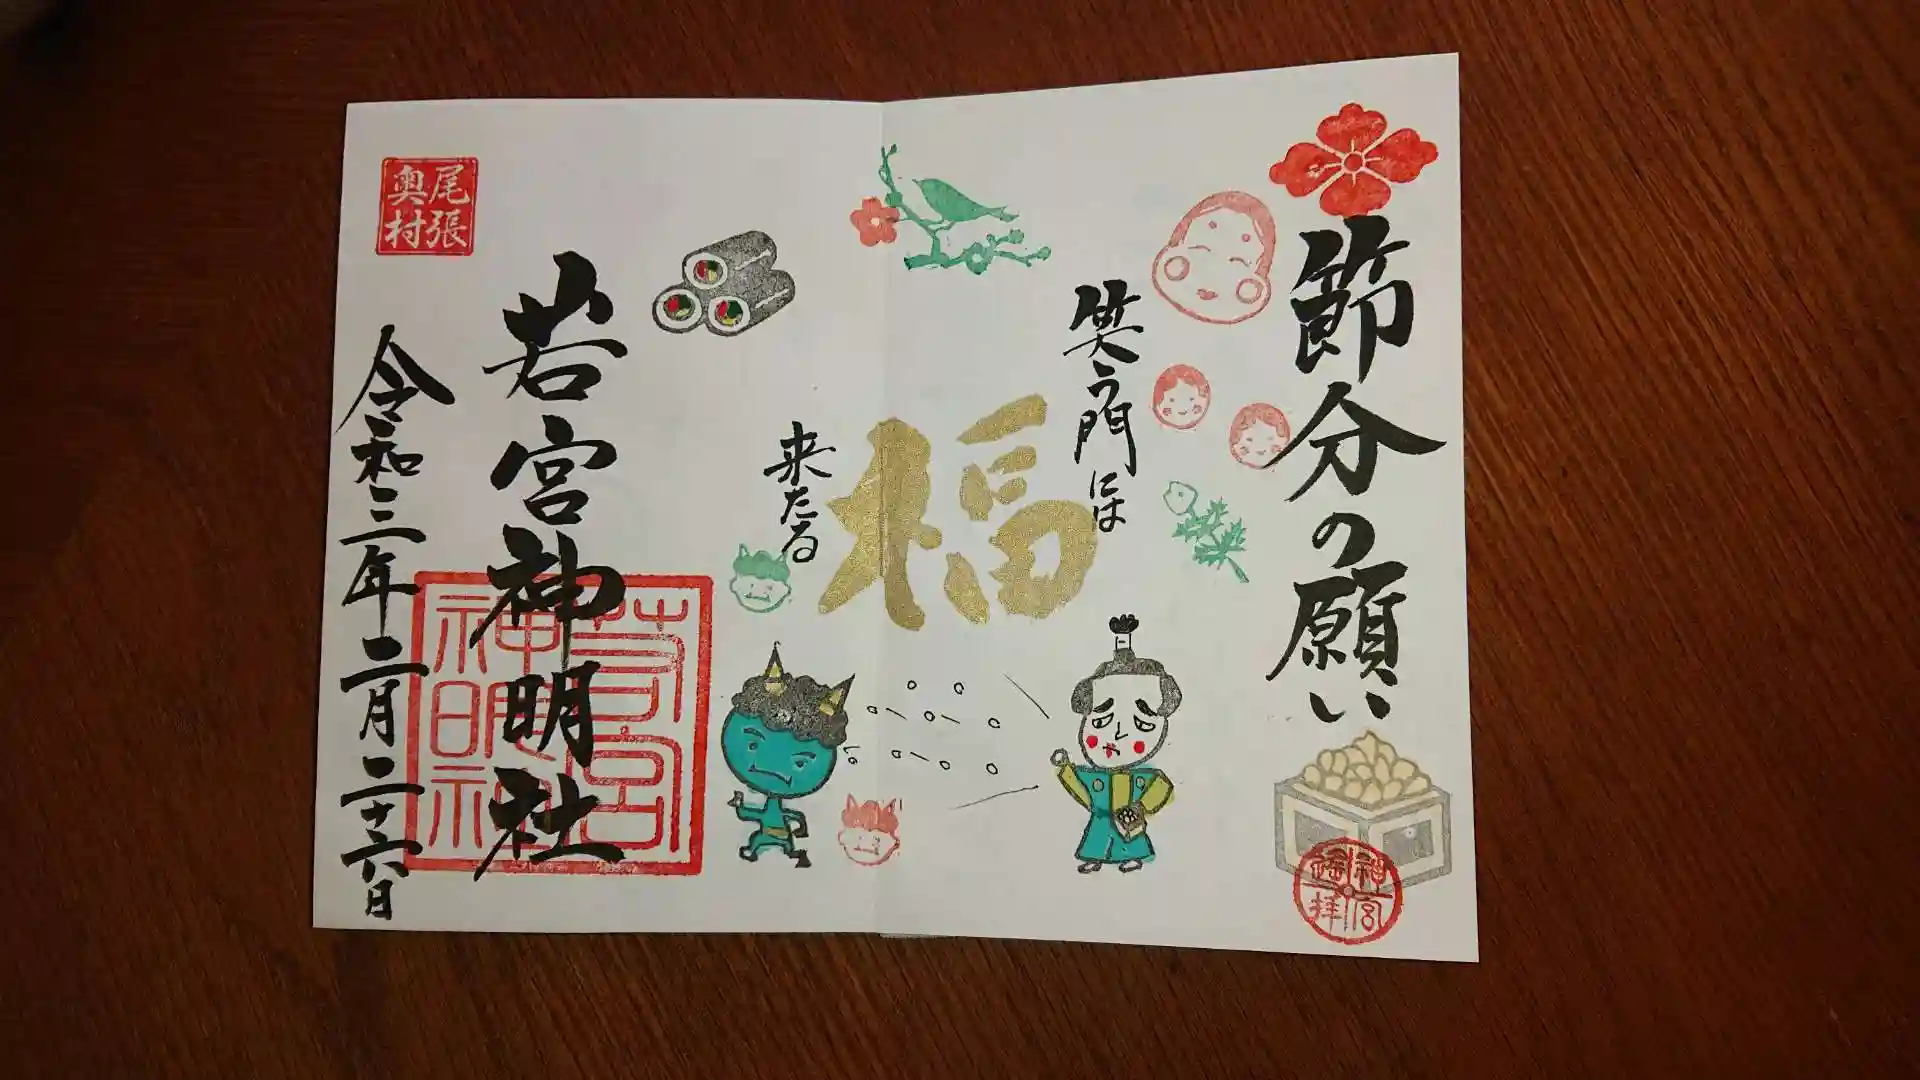 節分の願い
神宮
遥拝
笑う門には
福
来たる
若宮神明社
若宮
神明社
令和三年二月二十六日
尾張
奥村